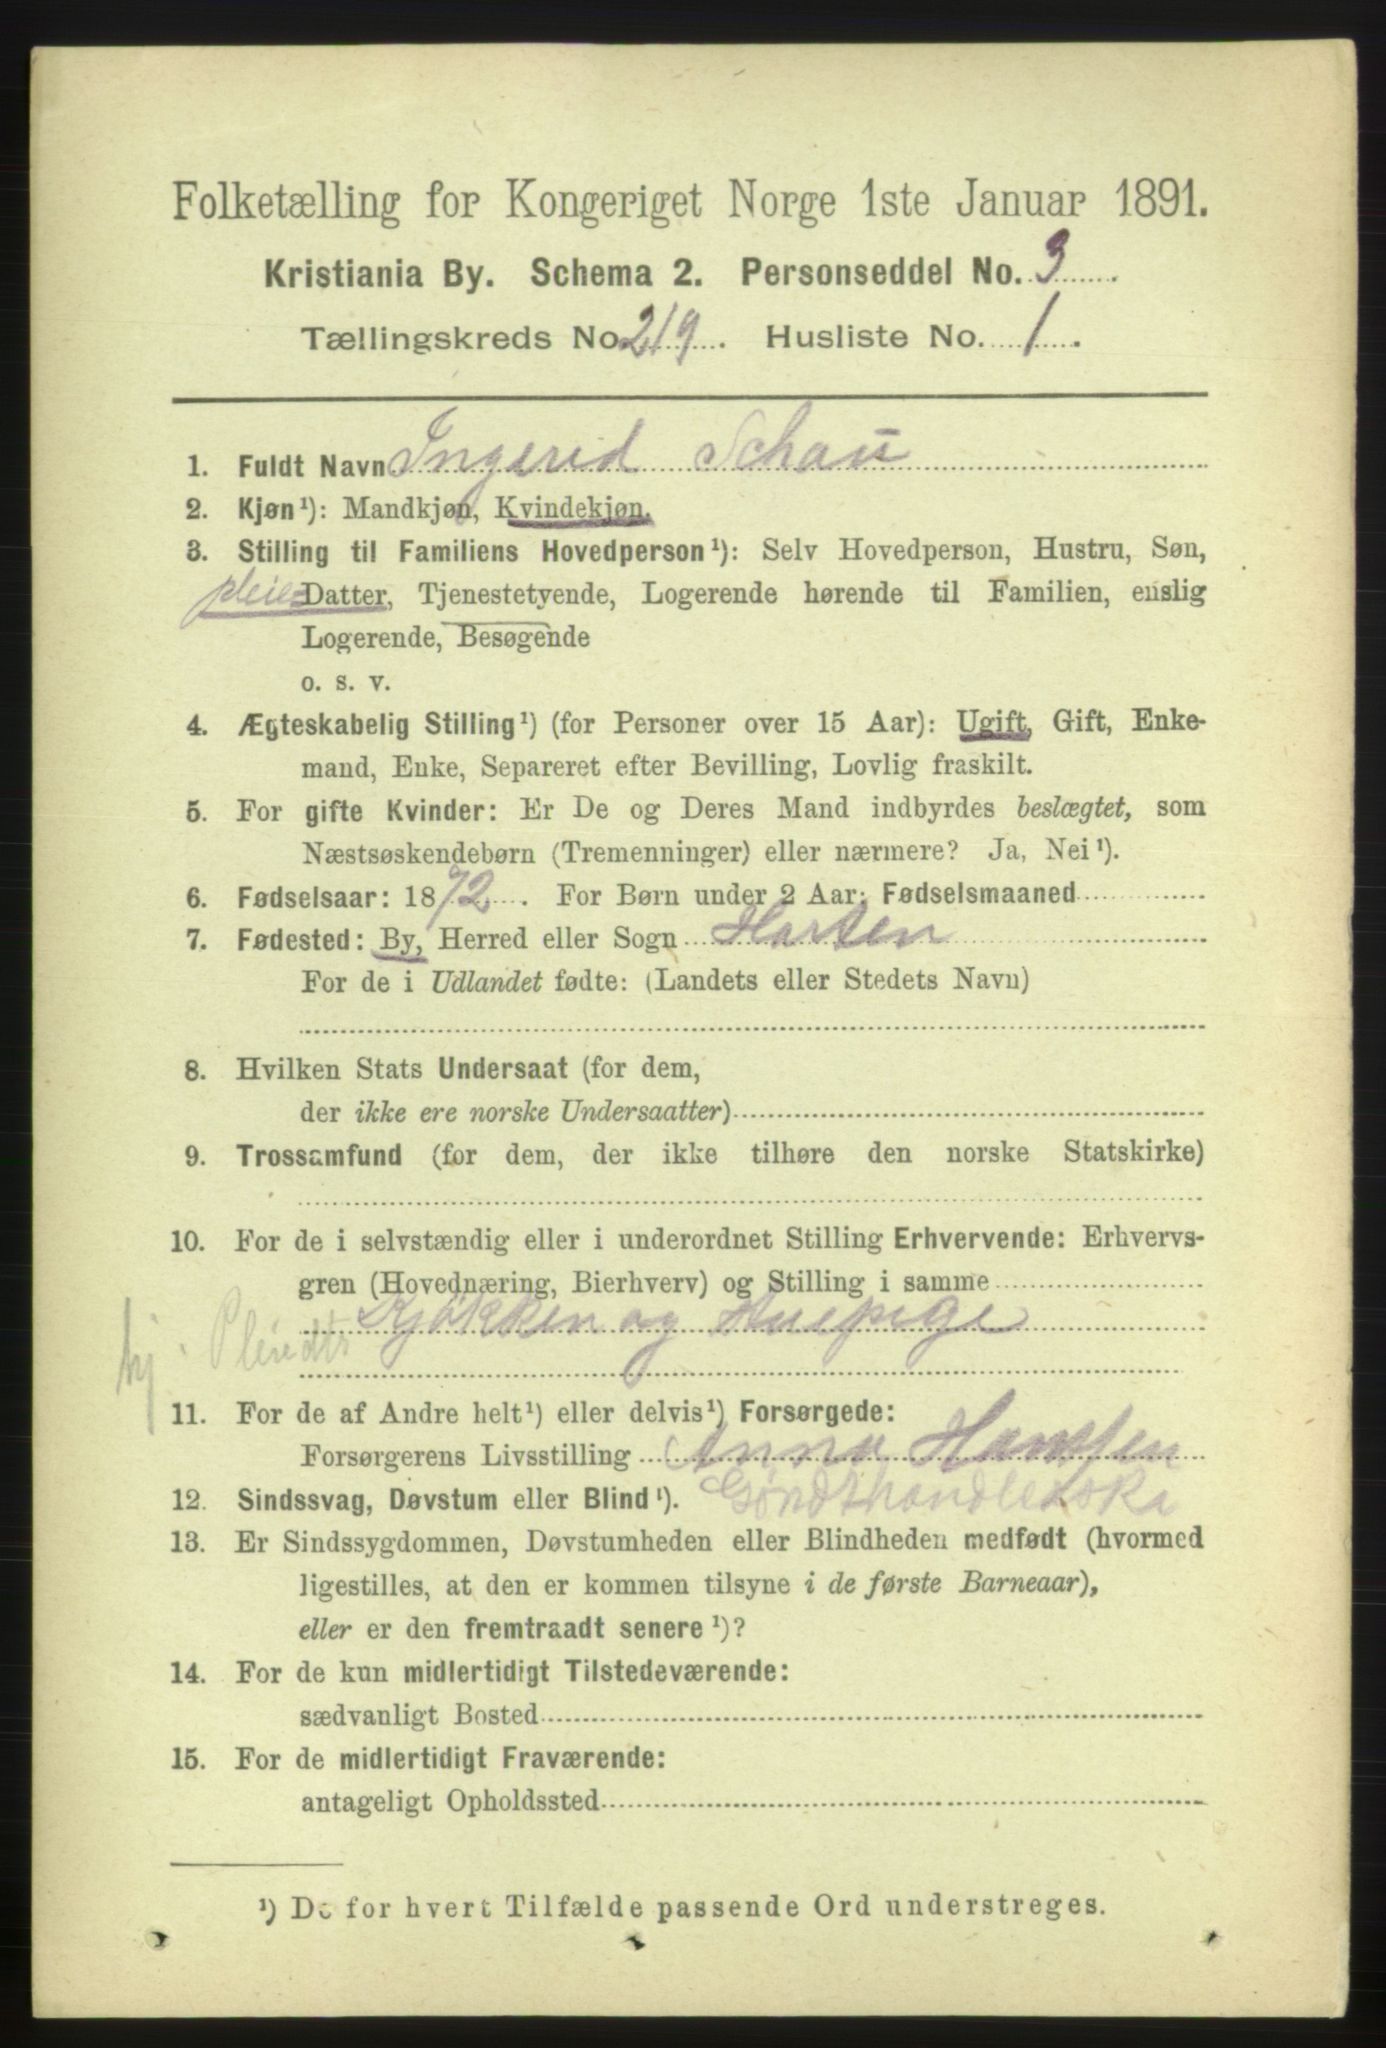 Folketælling for Kongeriget Norge 1ste Januar 1891.
Kristiania By. Schema 2. Personseddel No. 3.
Tællingskreds No. 219. Husliste No. 1.
1. Fuldt Navn Ingerid Schau
2. Kjøn¹): Mandkjøn, Kvindekjøn.
3. Stilling til Familiens Hovedperson¹): Selv Hovedperson, Hustru, Søn,
pleie Datter, Tjenestetyende, Logerende hørende til Familien, enslig
Logerende, Besøgende
o. s. v.
4. Ægteskabelig Stilling¹) (for Personer over 15 Aar): Ugift, Gift, Enke-
mand, Enke, Separeret efter Bevilling, Lovlig fraskilt.
5. For gifte Kvinder: Er De og Deres Mand indbyrdes beslægtet, som
Næstsøskendebørn (Tremenninger) eller nærmere? Ja, Nei¹).
6. Fødselsaar: 1872. For Børn under 2 Aar: Fødselsmaaned
7. Fødested: By, Herred eller Sogn Horten
For de i Udlandet fødte: (Landets eller Stedets Navn)
8. Hvilken Stats Undersaat (for dem,
der ikke ere norske Undersaatter)
9. Trossamfund (for dem, der ikke tilhøre den norske Statskirke)
10. For de i selvstændig eller i underordnet Stilling Erhvervende: Erhvervs-
gren (Hovednæring, Bierhverv) og Stilling i samme
hj. Pleiedts Kjøkken og Huspige
11. For de af Andre helt¹) eller delvis¹) Forsørgede:
Forsørgerens Livsstilling Anna Hansen
12. Sindssvag, Døvstum eller Blind¹).
13. Er Sindssygdommen, Døvstumheden eller Blindheden medfødt (hvormed
ligestilles, at den er kommen tilsyne i de første Barneaar),
eller er den fremtraadt senere¹)?
14. For de kun midlertidigt Tilstedeværende:
sædvanligt Bosted
15. For de midlertidigt Fraværende:
antageligt Opholdssted
¹) De for hvert Tilfælde passende Ord understreges.